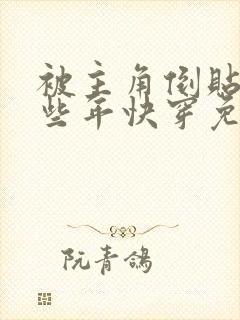 被主角倒贴
些年快穿免
阮青鸽